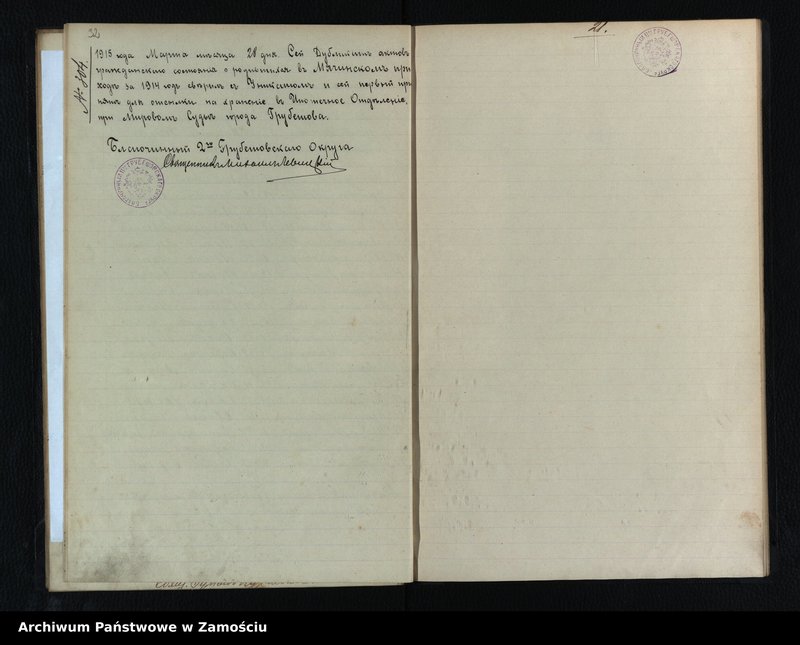 32
№ 304.
1915 года Марта месяца 28 дня. Сей Дубликатъ актовъ
гражданскаго состоянія о родившихся въ Мячинскомъ при
ходѣ за 1914 годъ свѣрилъ съ Уникатомъ и сей первый при
нялъ для отсылки на храненіе въ Ипотечное Отдѣленіе,
при Мировомъ Судьѣ города Грубешова.
Благочинный 2го Грубешовскаго Округа
Священникъ Михаилъ
28.
Archiwum Państwowe w Zamościu